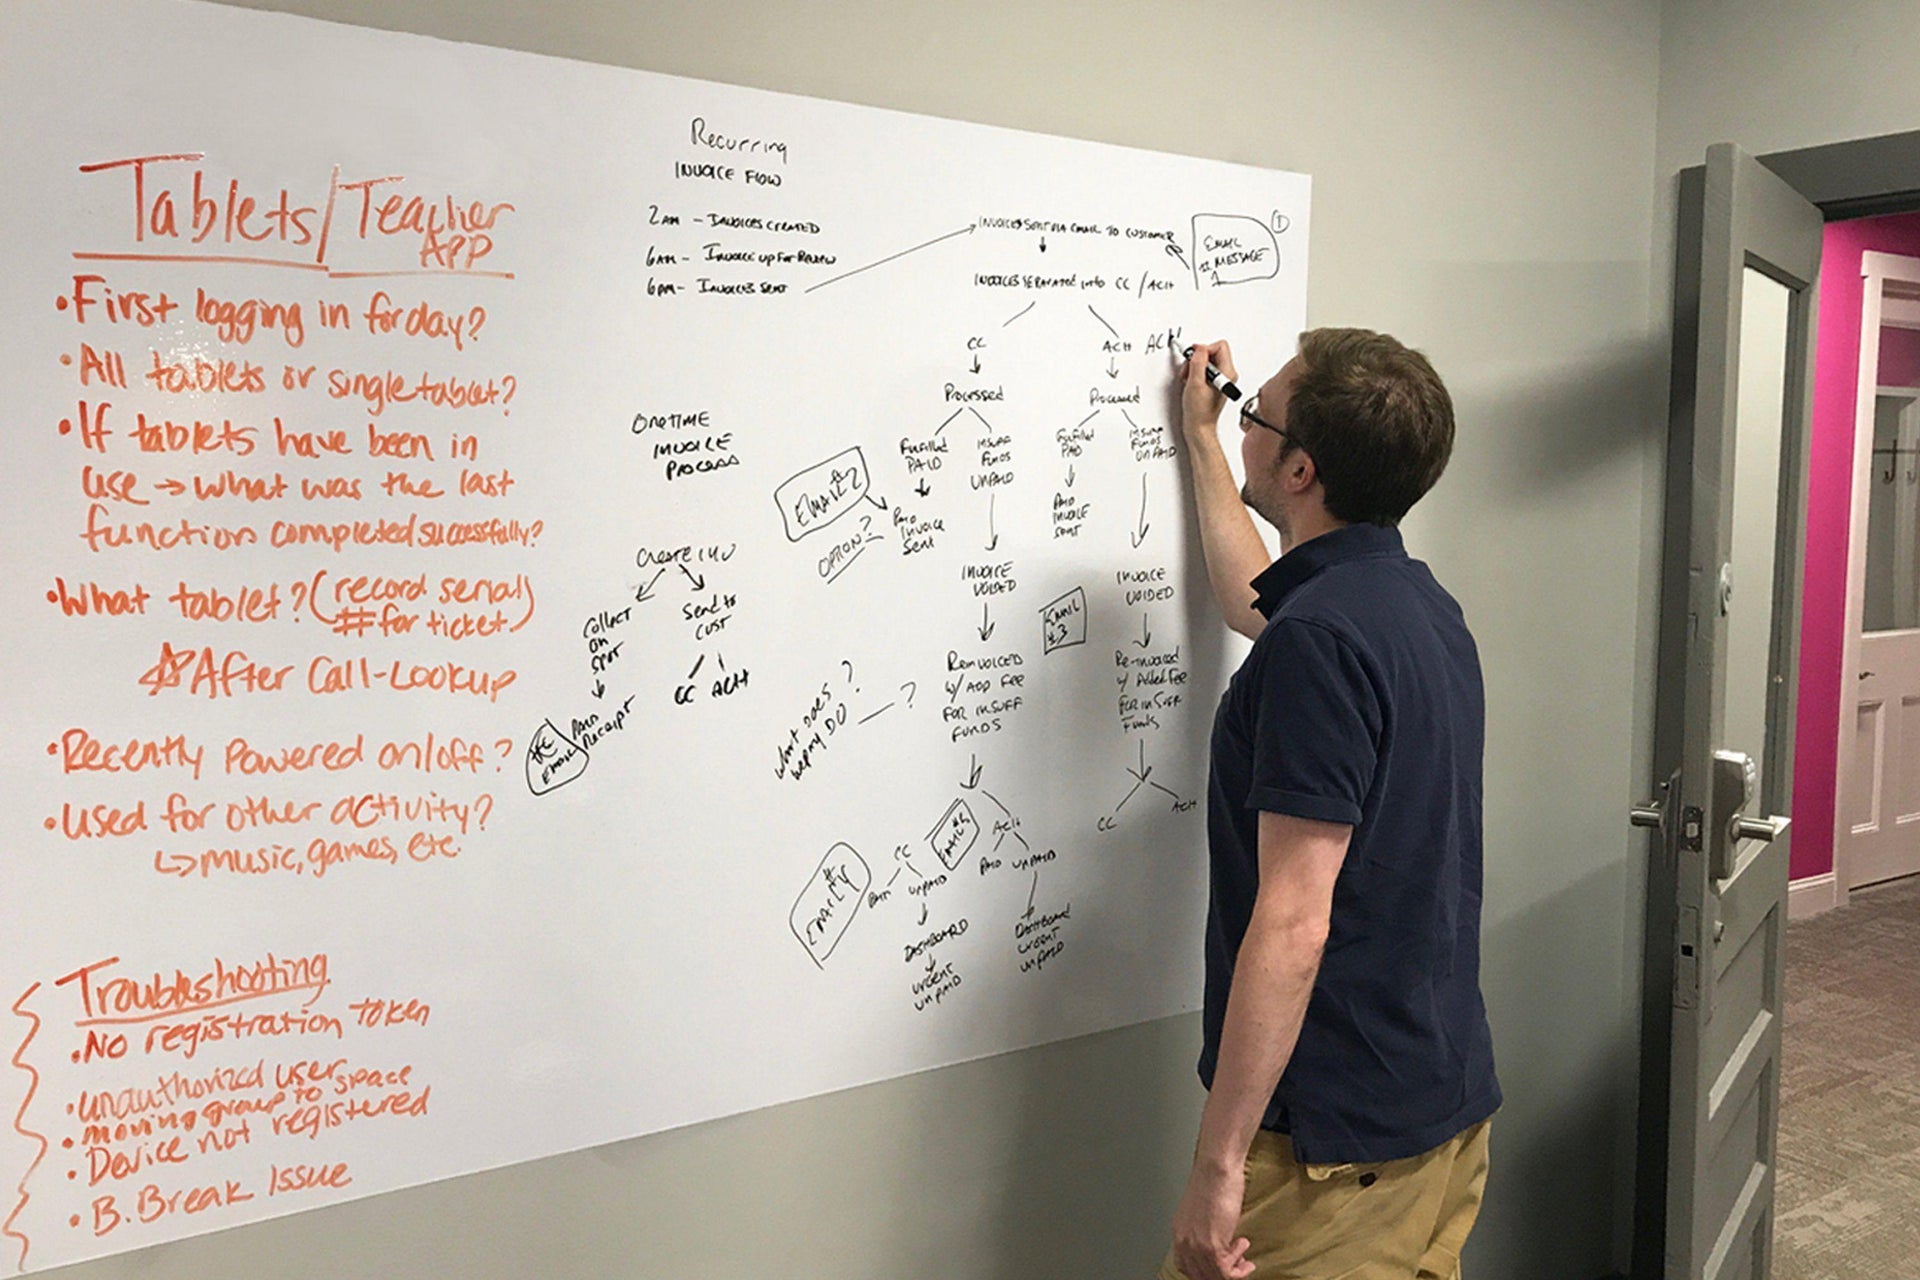 Tablets/Teacher
APP
• First logging in for day?
• All tablets or single tablet?
• If tablets have been in
use → what was the last
function completed successfully?
• What tablet? (record serial
# for ticket)
☆ After Call-Lookup
• Recently Powered on/off?
• Used for other activity?
↳ music, games, etc.
Troubleshooting
• No registration token
• unauthorized user
• moving group to space
• Device not registered
• B. Break Issue
Recurring
INVOICE FLOW
2AM - INVOICES CREATED
6AM - INVOICE UP FOR REVIEW
6PM - INVOICES SENT
ONE TIME
INVOICE
PROCESS
CREATE INV
COLLECT
ON
SPOT
PAID
Receipt
EMAIL
Send to
CUST
CC ACH
INVOICES SENT VIA EMAIL TO CUSTOMER
EMAIL
MESSAGE
1
INVOICES SEPARATED into CC / ACH
CC
Processed
Fulfilled
PAID
INSUFF
FUNDS
UNPAID
EMAIL #2
OPTION?
PAID
INVOICE
Sent
INVOICE
VOIDED
Reinvoiced
W/ ADD FEE
FOR INSUFF
FUNDS
What does ?
wepay DO — ?
CC
PAID
UNPAID
DASHBOARD
URGENT
UNPAID
EMAIL #4
EMAIL #5
ACH
PAID UNPAID
DASHBOARD
URGENT
UNPAID
ACH ACH
Processed
Fulfilled
PAID
INSUFF
FUNDS
UNPAID
PAID
INVOICE
SENT
INVOICE
VOIDED
EMAIL
#3
Re-invoiced
w/ Added Fee
FOR INSUFF
Funds
CC
ACH